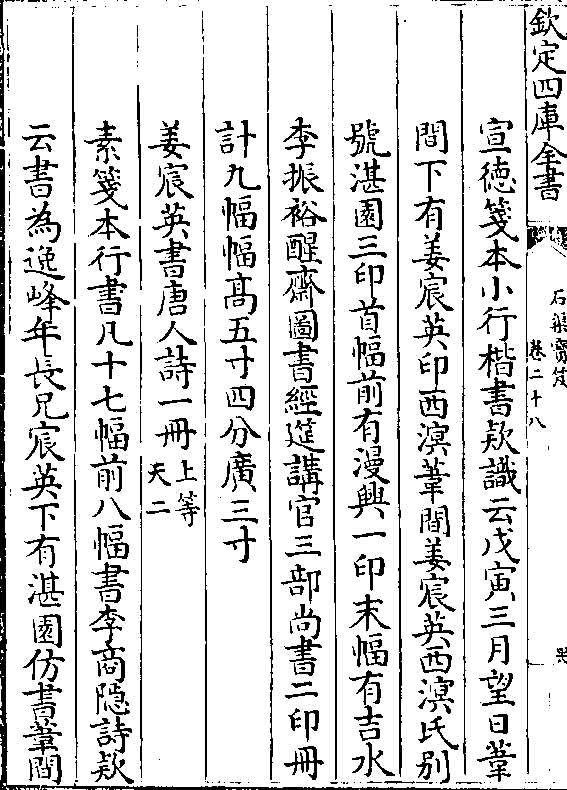 欽定四庫全書
石渠寶笈
卷二十八
宣徳箋本小行楷書欵識云戊寅三月望日葦
間下有姜宸英印西溟葦間姜宸英西溟氏别
號湛園三印首幅前有漫興一印末幅有吉水
李振裕醒齋圖書經筵講官三部尚書二印冊
計九幅幅髙五寸四分廣三寸
姜宸英書唐人詩一冊上等天二
素箋本行書凡十七幅前八幅書李商隠詩欵
云書為逸峰年長兄宸英下有湛園仿書葦間